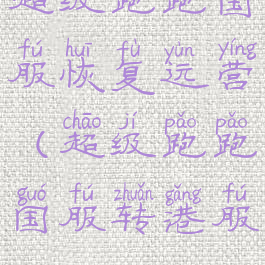 超级跑跑国
fú huī fù yùn yíng
服恢复运营
chāo jí pǎo pǎo
（超级跑跑
guó fú zhuǎn gǎng fú
国服转港服